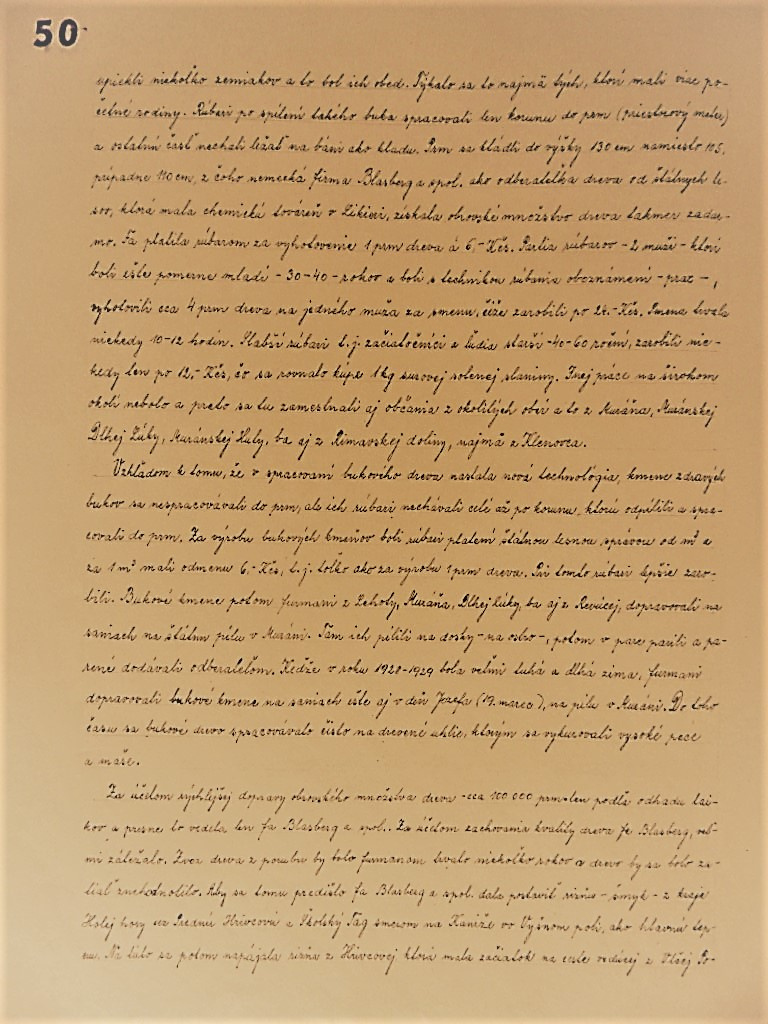 50
upiekli niekoľko zemiakov a to bol ich obed. Týkalo sa to najmä tých, ktorí mali viac po-
četné rodiny. Rúbari po spílení takého buka spracovali len korunu do prm (priestorový meter)
a ostatnú časť nechali ležať na báni ako kladu. Prm sa kládli do výšky 130 cm namiesto 105,
prípadne 110 cm, z čoho nemecká firma Blasberg a spol. ako odberateľka dreva od štátnych le-
sov, ktorá mala chemickú továreň v Likieri, získala obrovské množstvo dreva takmer zadar-
mo. Fa platila rúbarom za vyhotovenie 1 prm dreva á 6,- Kčs. Partia rúbarov - 2 muži - ktorí
boli ešte pomerne mladí - 30-40 - rokov a boli s technikou rúbania oboznámení - prax -,
vyhotovili cca 4 prm dreva na jedného muža za smenu, čiže zarobili po 24.- Kčs. Smena trvala
niekedy 10-12 hodín. Slabší rúbari t. j. začiatočníci a ľudia starší - 40-60 roční, zarobili nie-
kedy len po 12,- Kčs, čo sa rovnalo kúpe 1 kg surovej solenej slaniny. Inej práce na širokom
okolí nebolo a preto sa tu zamestnali aj občania z okolitých obcí a to z Muráňa, Muránskej
Dlhej Lúky, Muránskej Huty, ba aj z Rimavskej doliny, najmä z Klenovca.
Vzhľadom k tomu, že v spracovaní bukového dreva nastala nová technológia, kmene zdravých
bukov sa nespracovávali do prm, ale ich rúbari nechávali celé až po korunu, ktorú odpílili a spra-
covali do prm. Za výrobu bukových kmeňov boli rúbari platení štátnou lesnou správou od m³ a
za 1 m³ mali odmenu 6,- Kčs, t. j. toľko ako za výrobu 1 prm dreva. Pri tomto rúbari lepšie zaro-
bili. Bukové kmene potom furmani z Lehoty, Muráňa, Dlhej Lúky, ba aj z Revúcej, dopravovali na
saniach na štátnu pílu v Muráni. Tam ich pílili na dosky - na ostro -, potom v pare parili a pa-
rené dodávali odberateľom. Keďže v roku 1928-1929 bola veľmi tuhá a dlhá zima, furmani
dopravovali bukové kmene na saniach ešte aj v deň Jozefa (19. marec), na pílu v Muráni. Do toho
času sa bukové drevo spracovávalo čisto na drevené uhlie, ktorým sa vykurovali vysoké pece
a maše.
Za účelom rýchlejšej dopravy obrovského množstva dreva - cca 100 000 prm - len podľa odhadu lai-
kov a presne to vedela len fa Blasberg a spol.. Za účelom zachovania kvality dreva fe Blasberg, veľ-
mi záležalo. Zvoz dreva z porubu by bolo furmanom trvalo niekoľko rokov a drevo by sa bolo za-
tiaľ znehodnotilo. Aby sa tomu predišlo fa Blasberg a spol. dala postaviť rizňu - šmyk - z kraja
Holej hory cez Prednú Hrivcovú a Školský Tág smerom na Kaniže vo Vyšnom poli, ako hlavnú tep-
nu. Na túto sa potom napájala rizňa z Hrivcovej, ktorá mala začiatok na ceste vedúcej z